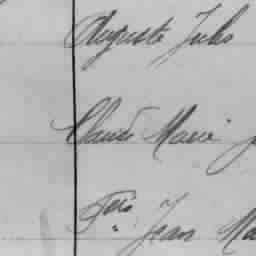 Auguste Jules
Claude Marie
Fçois Jean Ma